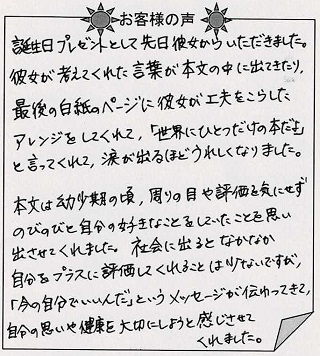 お客様の声
誕生日プレゼントとして先日彼女からいただきました。
彼女が考えてくれた言葉が本文の中に出てきたり、
最後の白紙のページに彼女が工夫をこらした
アレンジをしてくれて、「世界にひとつだけの本だよ」
と言ってくれて、涙が出るほどうれしくなりました。
本文は幼少期の頃、周りの目や評価を気にせず
のびのびと自分の好きなことをしていたことを思い
出させてくれました。社会に出るとなかなか
自分をプラスに評価してくれることは少ないですが、
「今の自分でいいんだ」というメッセージが伝わってきて、
自分の思いや健康を大切にしようと感じさせて
くれました。